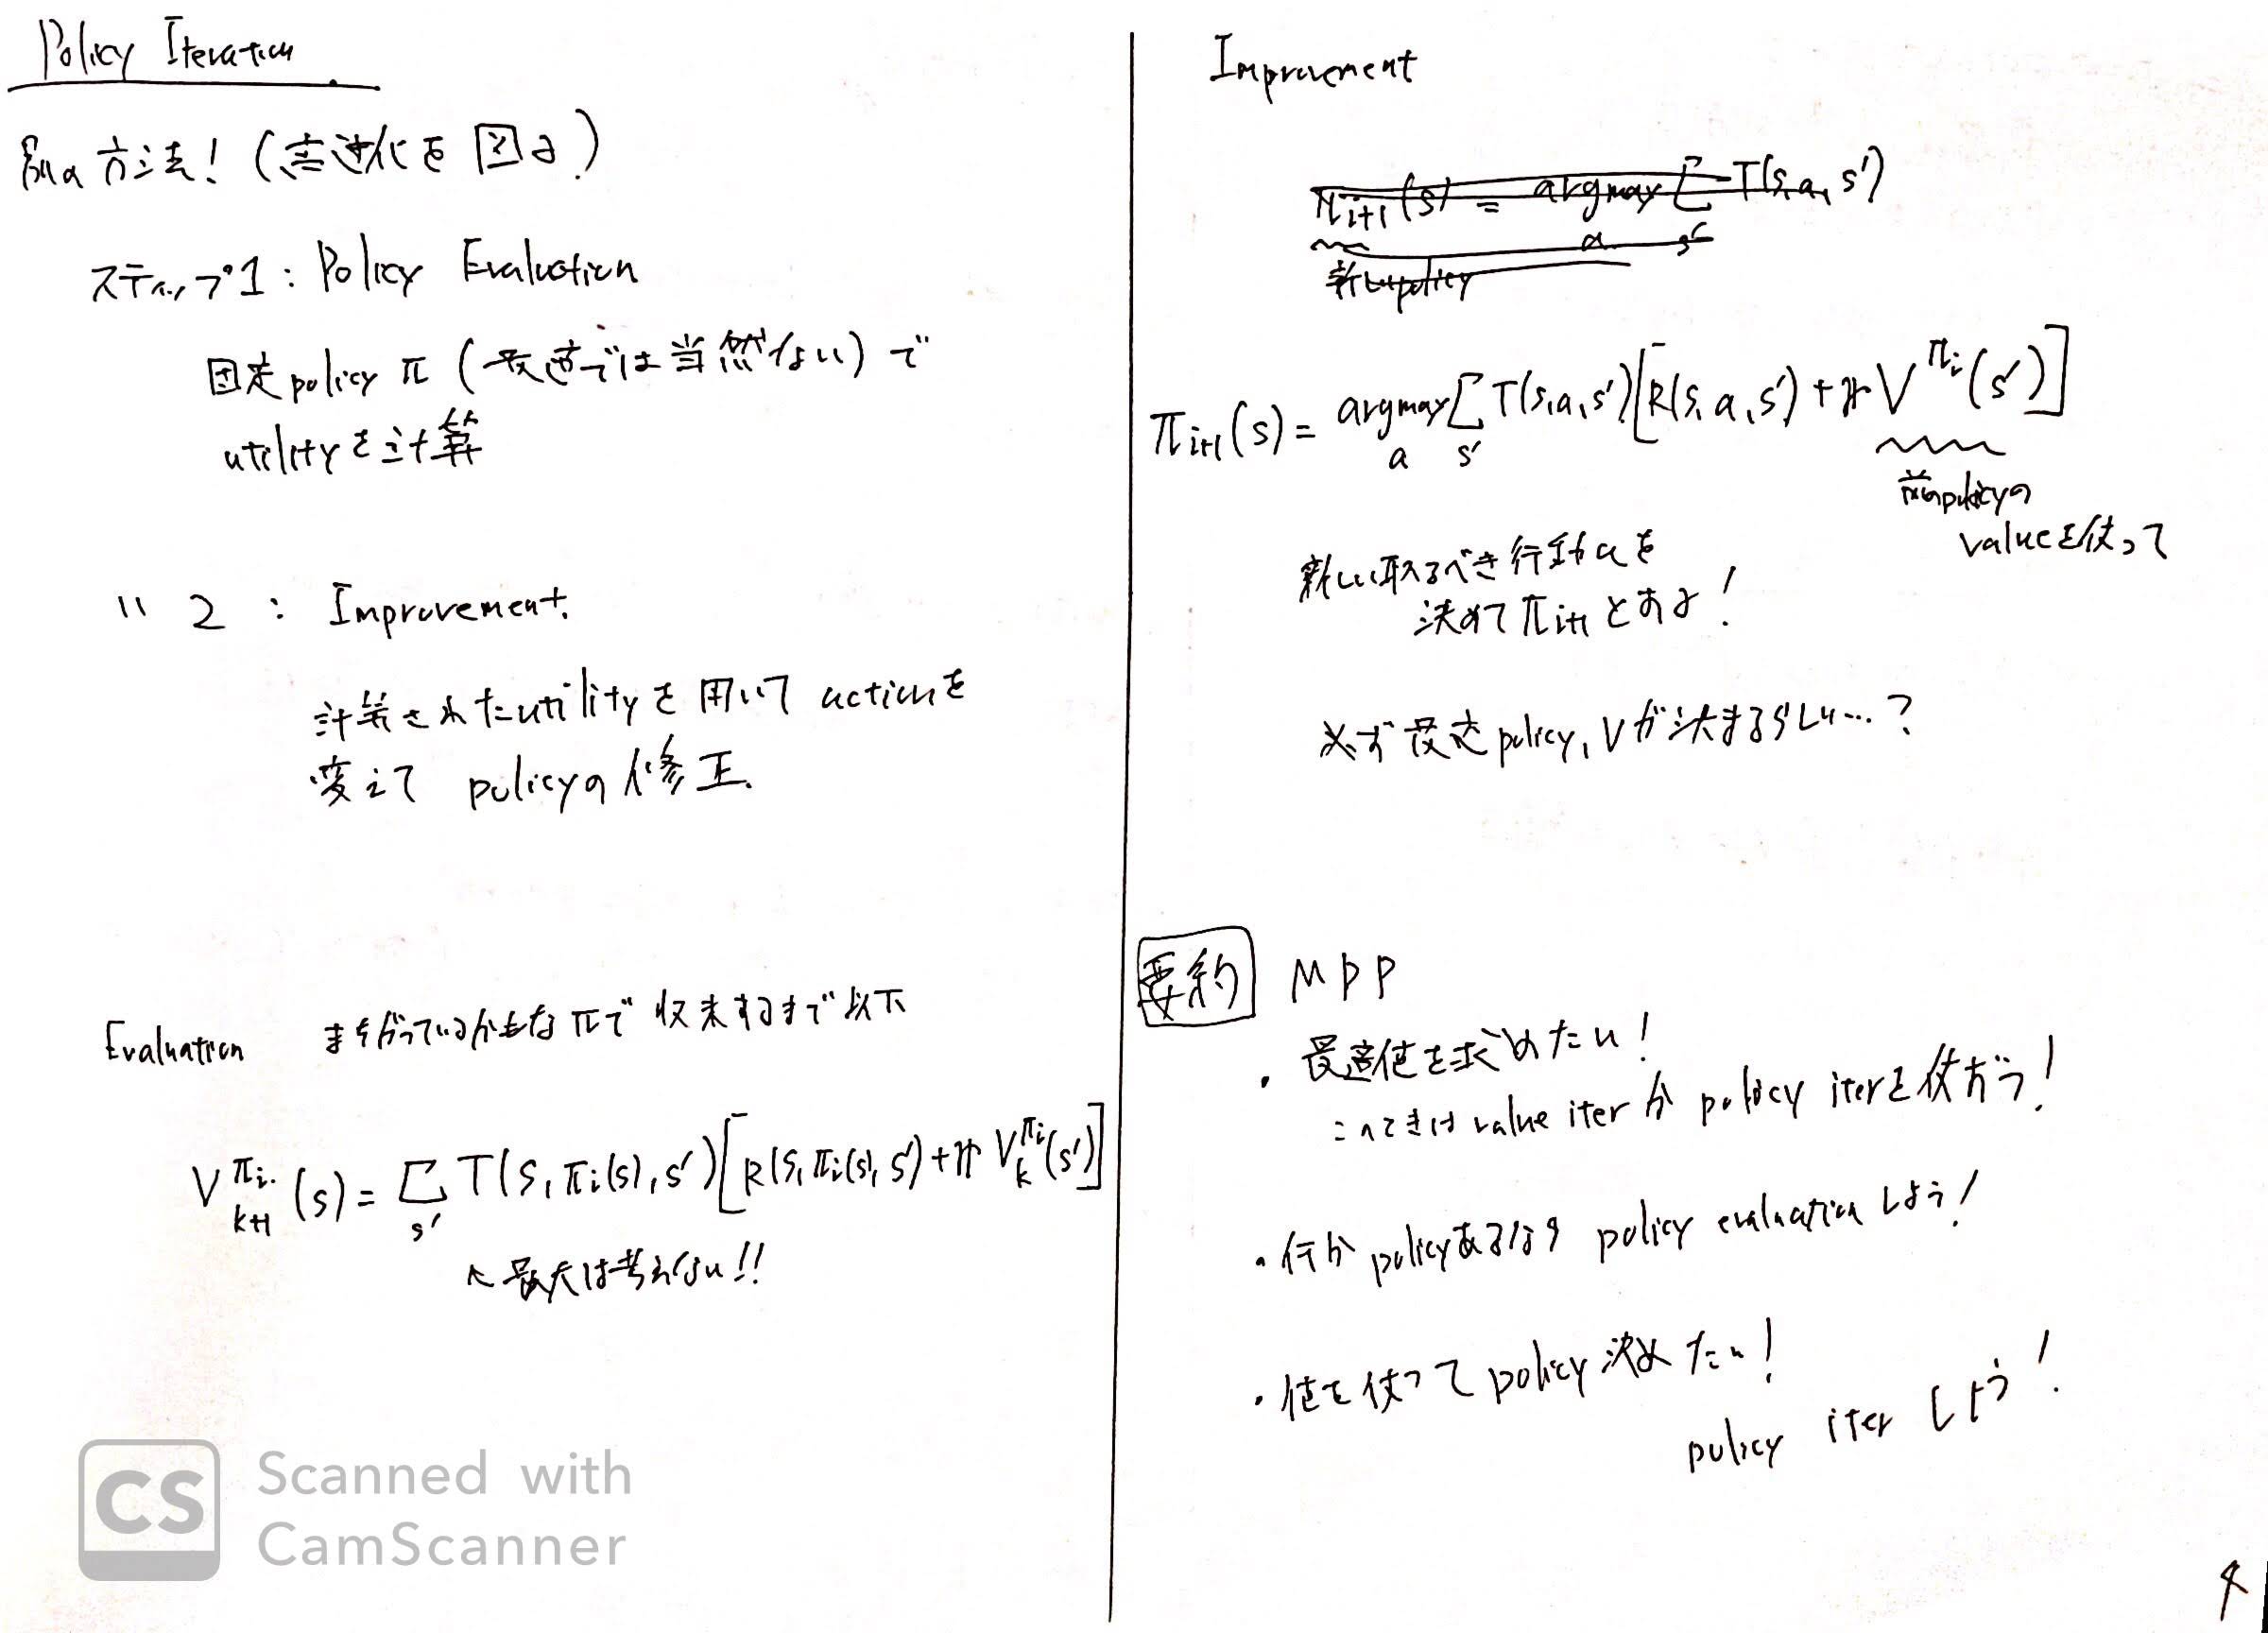 Policy Iteration
別の方法!(高速化を図る)
ステップ1: Policy Evaluation
固定policy π (最適では当然ない)で
utilityを計算
〃 2 : Improvement.
計算されたutilityを用いて actionを
変えて policyの修正.
Evaluation まちがっているかもなπで 収束するまで以下
V^{πi}_{k+1}(s) = Σ_{s'} T(s, πi(s), s')[R(s, πi(s), s') + γ V^{πi}_k(s')]
↖最大は考えない!!
Improvement
π_{i+1}(s) = argmax_a Σ_{s'} T(s, a, s')
新しいpolicy
π_{i+1}(s) = argmax_a Σ_{s'} T(s, a, s')[R(s, a, s') + γ V^{πi}(s')]
前のpolicyの
valueを使って
新しい取るべき行動aを
決めて π_{i+1} とする!
必ず最適policy, Vが決まるらしい…?
要約 MDP
・最適値を求めたい!
このときは value iter か policy iterを使おう!
・何か policyあるなら policy evaluation しよう!
・値を使って policy 決めたい!
policy iter しよう!
4
CS Scanned with
CamScanner